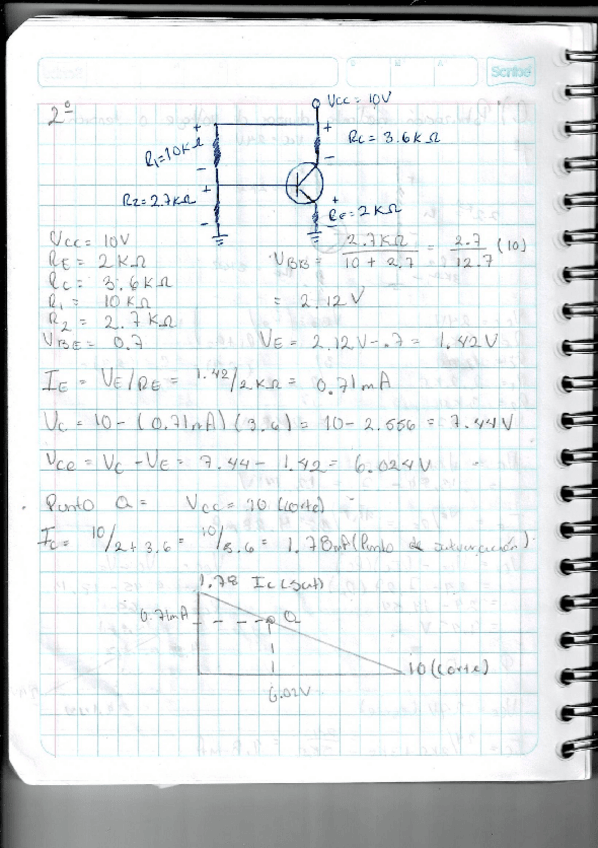 Scribe
2º
Vcc = 10V
R1=10KΩ
Rc = 3.6KΩ
R2=2.7KΩ
RE=2KΩ
Vcc = 10V
RE = 2KΩ
Rc = 3.6KΩ
R1 = 10KΩ
R2 = 2.7KΩ
VBE = 0.7
VBB = 2.7KΩ / 10 + 2.7 = 2.7 / 12.7 (10)
= 2.12V
VE = 2.12V-.7 = 1.42V
IE = VE/RE = 1.42/2KΩ = 0.71mA
Vc = 10-(0.71mA)(3.6) = 10-2.556 = 7.44V
Vce = Vc-VE = 7.44-1.42 = 6.024V
Punto Q = Vcc = 10 (corte)
Ic = 10/2+3.6 = 10/5.6 = 1.78mA (Punto de saturación)
1.78 Ic (sat)
0.71mA
Q
10 (corte)
6.02V